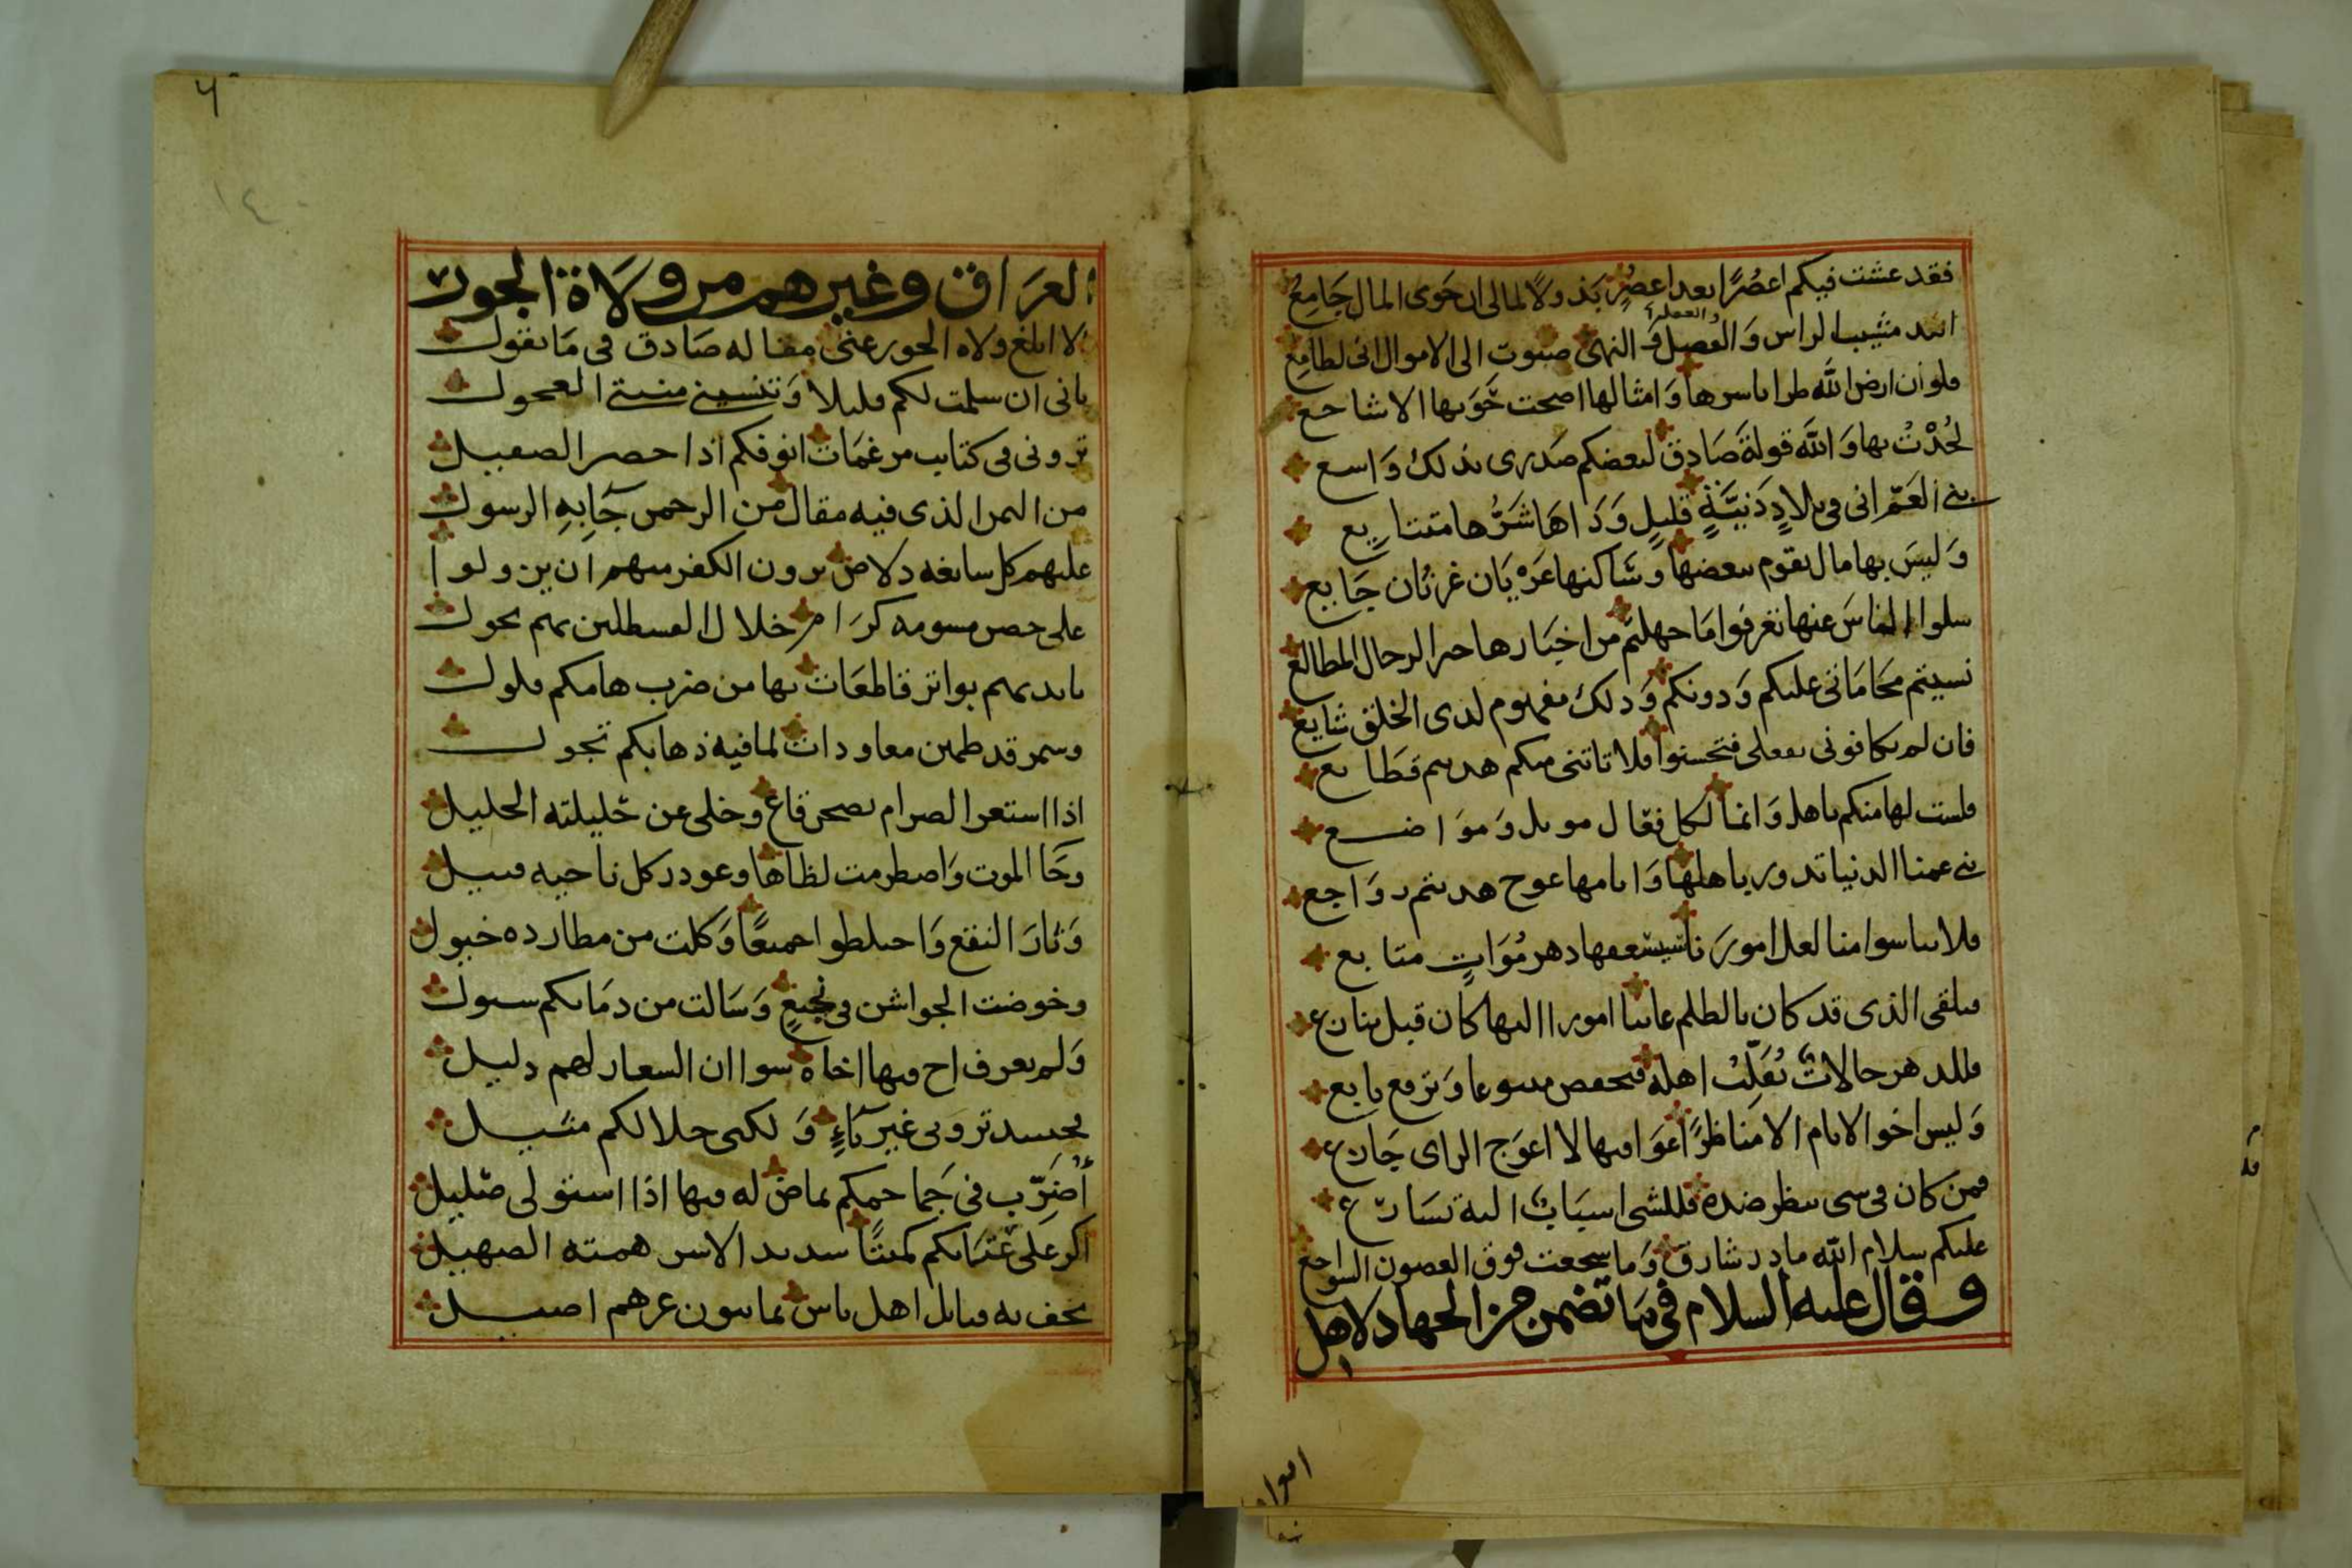 فقد عشت فيكم اعصُرًا بعد اعصُرٍ بَذولًا لمالى ان حَوى المال جَامِعُ
والعملرا
مشيب الراس وَالفصل وَ النهى صبوت الى الاموال انى لطامِعُ
فلو ان ارض الله طرا باسرها وَامثالها اصحت حَوَىها الاشاجع
لجُدْتُ بها وَالله قولةَ صَادِقٍ لبعضكم صَدرى بذلك وَاسع
بنے العَمّ انى فى بلادٍ دَنيَّةٍ قليلٍ وَدَاهَا شَرُّها متتايع
وَليسَ بها مال يقوم ببعضها وسَاكنها عَرْيَان غرثان جَايع
سلوا الناسَ عنها تعرفوا مَا جهلتم من اخبَارها خبر الرجال المطالع
نسيتم مَحَامَاتى عليكم وَدونكم وَذلك مفهوم لدى الخلق شايع
فان لم تكافونى بفعلى فتحسنوا فلا تاتنى منكم هديتم قطَايع
فلست لها منكم باهل وَانما لكل فعَال موىل وَموَاضع
بنے عمنا الدنيا تدور باهلها وَايامها عوج هديتم روَاجع
فلا تياسوا منا لعل امورَنا سيشفعها دهر مُوَاتٍ متابع
فيلقى الذى قد كان بالظلم عاتيا امورا اليها كان قبل ينازع
فللدهر حالاتٌ تُقَلِّبُ اهله فتخفض متبوعا وَترفع تابع
وَليس اخو الايام الا مناظرًا
فمن كان فى شى ينظر ضده فللشى اسبَابٌ اليه تسَارع
عليكم سلام الله ما ذر شارق وَما سجعت فوق الغصون السواجع
وقال عليه السلام فى مَا تضمن من الجهاد لاهل
العرَاق وغيرهم من ولَاة الجور
الا ابلغ ولاه الجور عنى مقاله صَادق فى مَا يقول
بانى ان سلمت لكم قليلا وَتنسينے منيتے العجول
ترونى فى كتايب مرغمَات انوفكم اذا حصر الصقيل
من اليمن الذى فيه مقال من الرحمن جَا بِهِ الرسول
عليهم كل سابغه دلاص يرون الكفر منهم ان يزولوا
على حصن مسومه كرَام خلال القسطلين بهم تجول
بايديهم بواتر قاطعَات بها من ضرب هامكم فلول
وسمر قد ظمين معاودات لما فيه ذهابكم تجول
اذا استعر الصرام بصحن قاع وخلى عن خليلته الخليل
وجَا الموت وَاضطرمت لظاها وغودر كل ناحيه قتيل
وَثارَ النقع وَاختلطوا جميعًا وَكلت من مطارده خيول
وخوضت الجواشن فى نجيعٍ وَسَالت من دمَائكم سيول
وَلم يعرف اخ فيها اخاه سوا ان الشعار لهم دليل
ترونى غير نَاءٍ وَلكنى حلالكم مثيل
أُضَرِّب فى جَماجمكم بماض له فيها اذا استولى صَليل
اكر عَلى كميتًا شديد الاسر همته الصهيل
تحف به قبايل اهل باس يمانيون عزهم اصيل